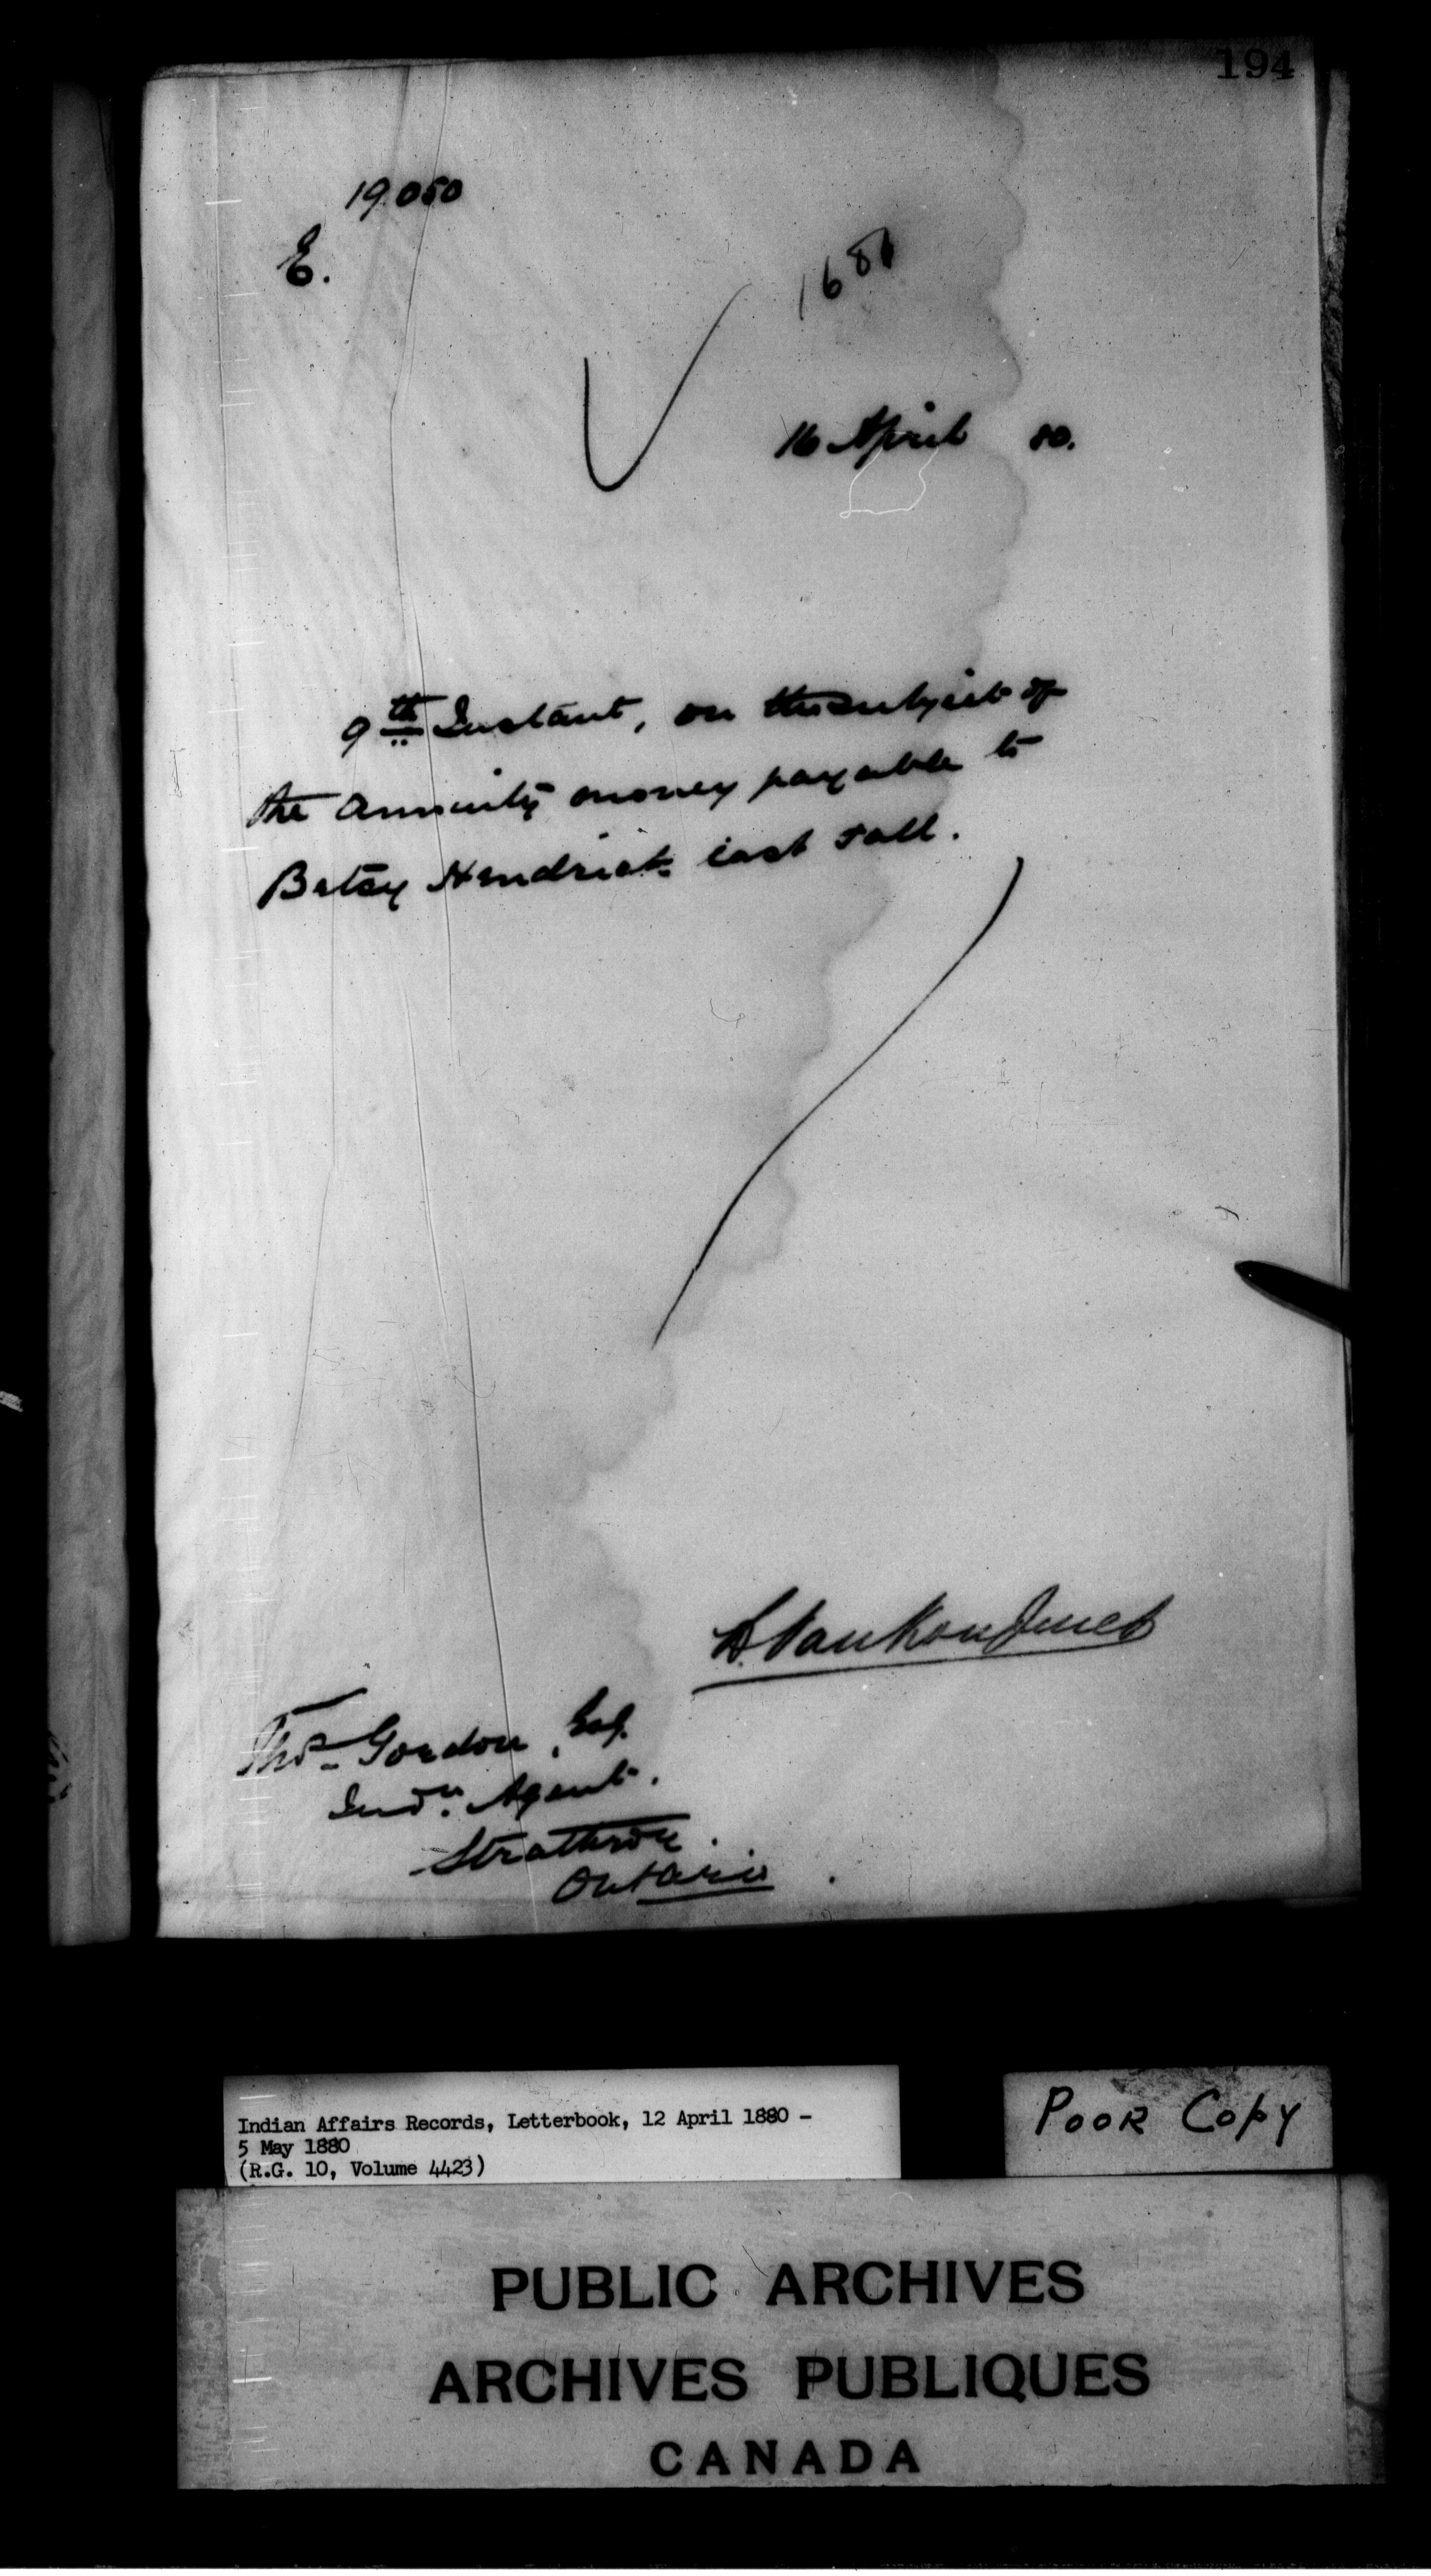 194
19.050
E.
16 April 80.
9th Instant, on the subject of
the annuity money payable to
Betsy Hendrick last Fall.
L. VanKoughnet
Thos. Gordon, Esq.
Indn. Agent.
Strathroy.
Ontario
Indian Affairs Records, Letterbook, 12 April 1880 -
5 May 1880
(R.G. 10, Volume 4423)
POOR COPY
PUBLIC ARCHIVES
ARCHIVES PUBLIQUES
CANADA